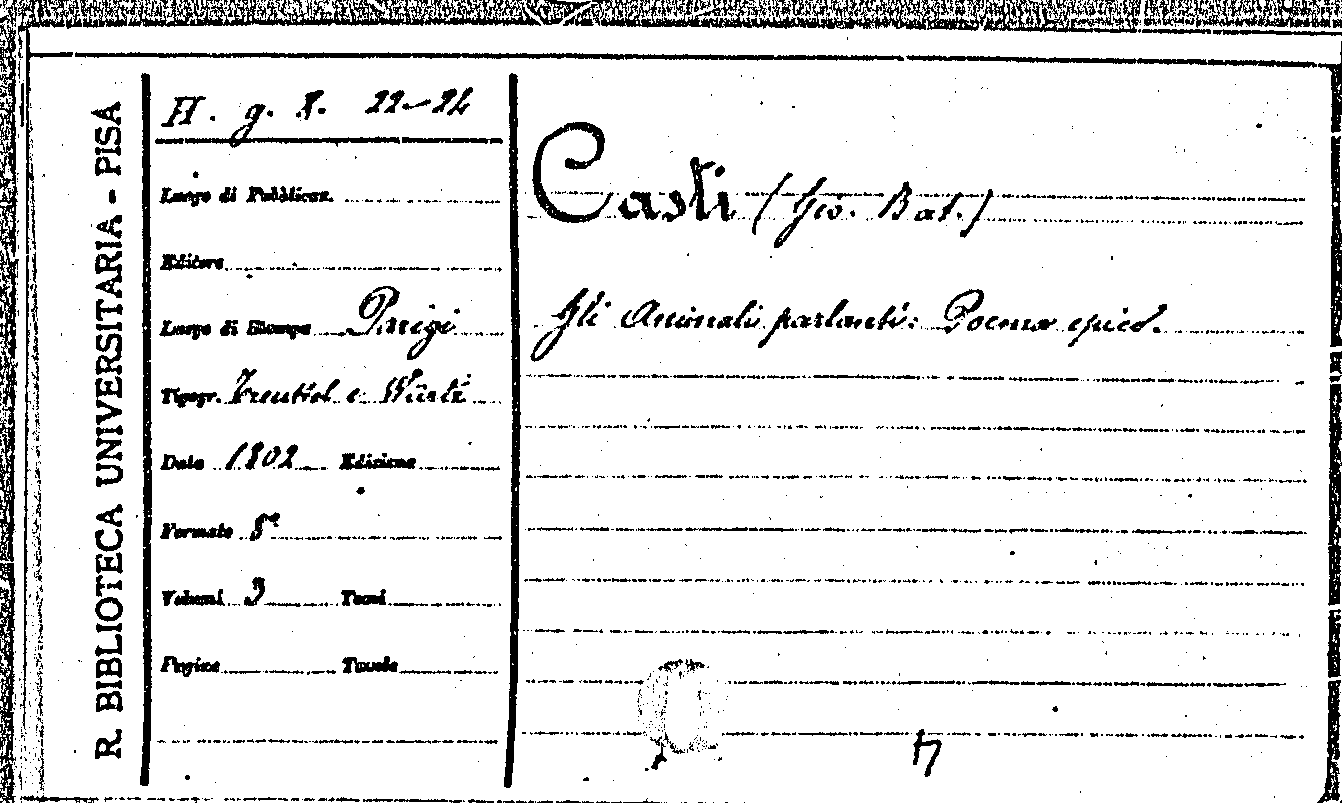 R. BIBLIOTECA UNIVERSITARIA - PISA
H. g. 8. 22-24
Luogo di Pubblicaz.
Editore
Luogo di Stampa Parigi
Tipogr. Treuttel e Würtz
Data 1802 Edizione
Formato 8°
Volumi 3 Tomi
Pagine Tavole
Casti (Gio. Bat.)
Gli Animali parlanti: Poema epico.
4